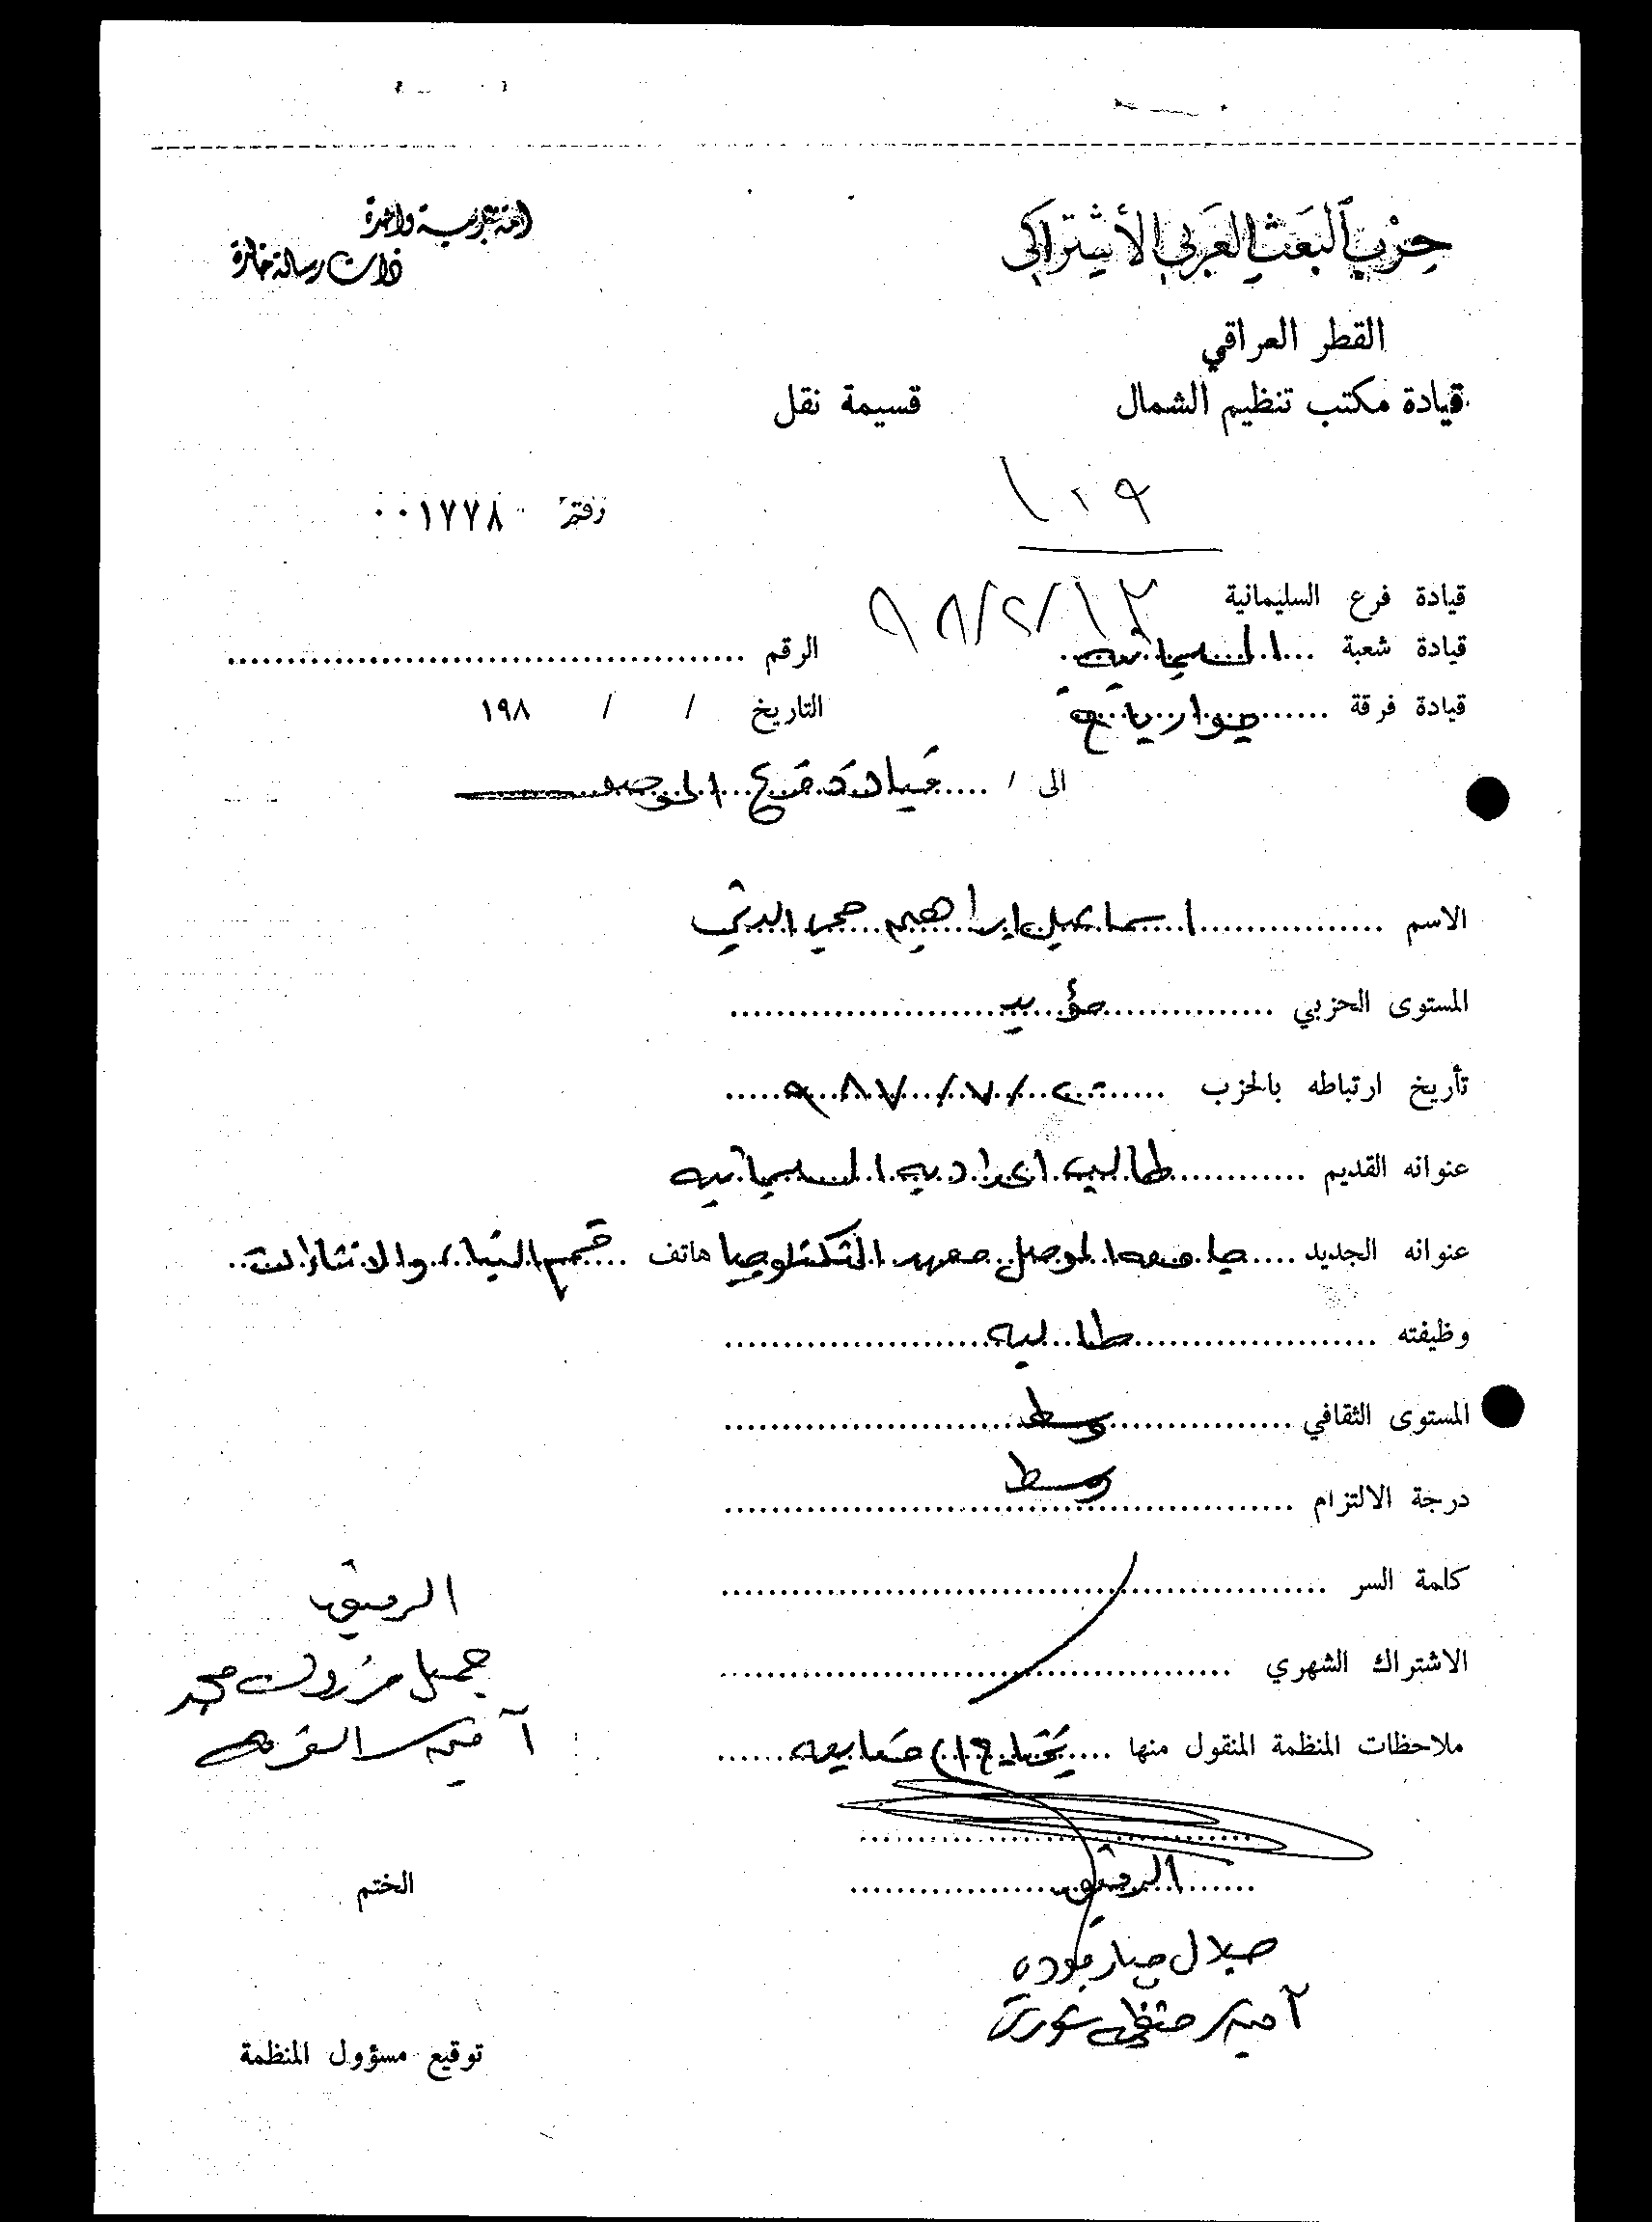 حزب البعث العربي الاشتراكي
امة عربية واحدة
ذات رسالة خالدة
القطر العراقي
قيادة مكتب تنظيم الشمال
قسيمة نقل
١٠٩
رقم ٠٠١٧٧٨
قيادة فرع السليمانية
٩٨٨/٢/١٢
قيادة شعبة السليمانية
الرقم
قيادة فرقة جوارباخ
التاريخ / / ١٩٨
الى / قيادة فرع الموصل
الاسم اسماعيل ابراهيم محي الدين
المستوى الحزبي مؤيد
تأريخ ارتباطه بالحزب ٩٨٧/٧/٢٠
عنوانه القديم طالب اعدادية السليمانية
عنوانه الجديد جامعة الموصل معهد التكنلوجيا هاتف قسم البناء والانشاءات
وظيفته طالب
المستوى الثقافي وسط
درجة الالتزام وسط
كلمة السر
الاشتراك الشهري
ملاحظات المنظمة المنقول منها يحتاج الى متابعه
الرفيق
جميل مرزوك محمد
آمين سر الفرقة
الرفيق
جلال
الختم
توقيع مسؤول المنظمة